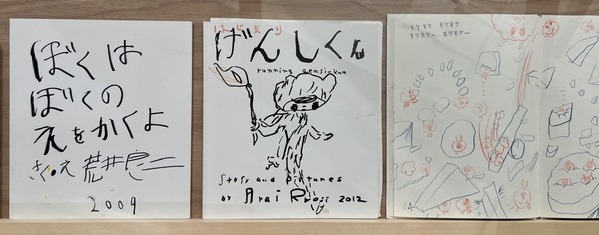 ぼくは
ぼくの
えをかくよ
さく・え 荒井良二
2009
はしり
げんしくん
running gensi-kun
Story and pictures
by Arai Ryoji 2012
モケモケ モケモケ
モケモケー モケモケー